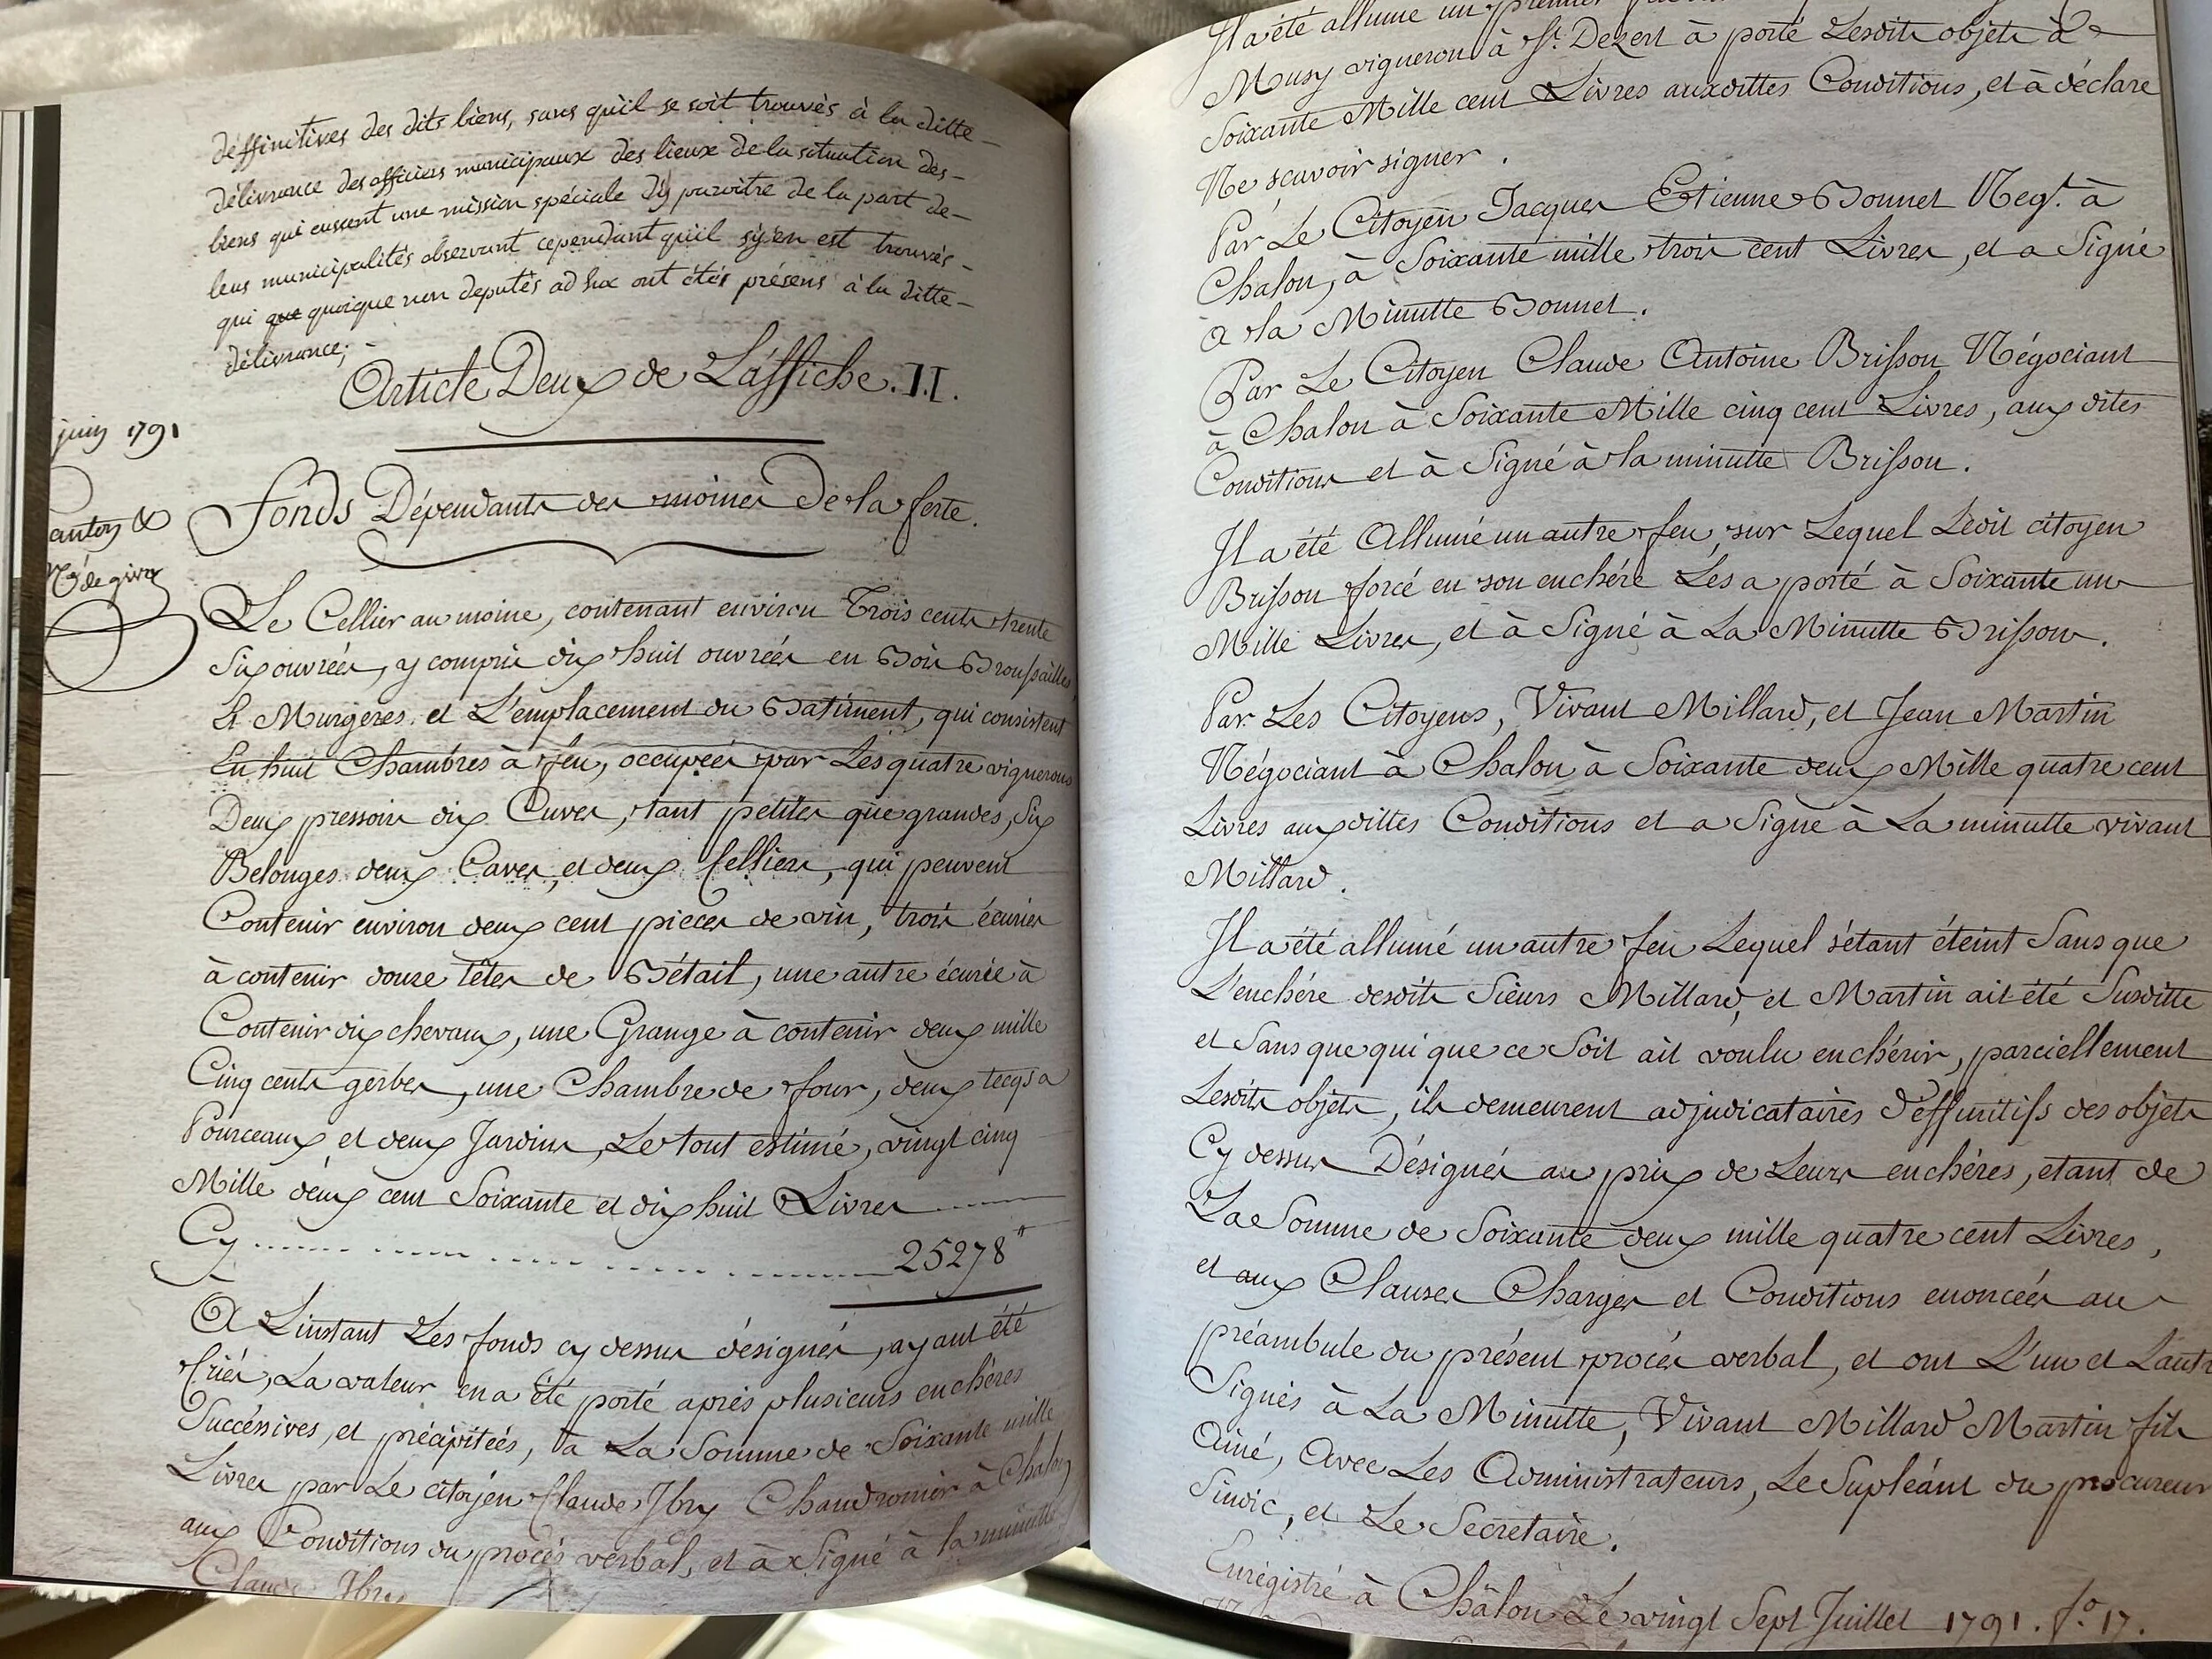 déffinitives des dits biens, sans qu'il se soit trouvés à la ditte
délivrance des officiers municipaux des lieux de la situation des
biens qui eussent une mission spéciale d'y paroitre de la part de
leurs municipalités observant cependant qu'il s'y en est trouvés
qui que quoique non deputés ad hoc ont étés présens à la ditte
délivrance;
Article Deux de L'affiche. II.
juin 1791
Fonds Dépendants des moines de la ferte.
anton &
de givry
Le Cellier au moine, contenant environ Trois cents trente
Six ouvrées, y compris dix huit ouvrées en Bois Broussailles
Et Murgeres et L'emplacement du Batiment, qui consistent
En huit Chambres à feu, occupées par Les quatre vignerons
Deux pressoirs dix Cuves, tant petites que grandes, Six
Belonges deux Caves, et deux Celliers, qui peuvent
Contenir environ deux cent pieces de vin, trois écuries
à contenir douze têtes de Bétail, une autre écurie à
Contenir dix chevaux, une Grange à contenir deux mille
Cinq cents gerbes, une Chambre de four, deux tecqs a
Pourceaux et deux Jardins, Le tout estimé, vingt cinq
Mille deux cent Soixante et dix huit Livres
Cy 25278ᵗᵗ
A L'instant Les fonds cy dessus désignés, ayant été
Criés, La valeur en a été porté aprés plusieurs enchéres
Succéssives, et précipitées, à La Somme de Soixante mille
Livres par Le citoyén Claude Jbry Chaudronnier à Chalon
aux Conditions du procés verbal, et à Signé à la minutte
Claude Jbry
Il a été allumé un premier
Musy vigneron à St. Dezert à porté Lesdits objets à
Soixante Mille cent Livres auxdittes Conditions, et à déclaré
Ne sçavoir signer.
Par Le Citoyen Jacques Etienne Bonnet Negt. à
Chalon, à Soixante mille trois cent Livres, et a Signé
a la Minutte Bonnet.
Par Le Citoyen Claude Antoine Brisson Négociant
à Chalon à Soixante Mille cinq cent Livres, aux dites
Conditions et à Signé à la minutte Brisson.
Il a été Allumé un autre feu, sur Lequel Ledit citoyen
Brisson forcé en son enchére Les a porté à Soixante un
Mille Livres, et à Signé à La Minutte Brisson.
Par Les Citoyens, Vivant Millard, et Jean Martin
Négociant à Chalon à Soixante deux Mille quatre cent
Livres auxdittes Conditions et a Signé à La minutte vivant
Millard.
Il a été allumé un autre feu Lequel s'étant éteint Sans que
L'enchére desdits Sieurs Millard, et Martin ait été Susditte
et Sans que qui que ce Soit ait voulu enchérir, parciellement
Lesdits objets, ils demeurent adjudicataires déffinitifs des objets
Cy dessus Désignés au prix de Leurs enchéres, etant de
La Somme de Soixante deux mille quatre cent Livres,
et aux Clauses Charges et Conditions enoncées au
préambule du présent procés verbal, et ont L'un et Lautre
Signés à La Minutte, Vivant Millard Martin fils
Ainé, Avec Les Administrateurs, Le Supléant du procureur
Sindic, et Le Secretaire.
Enrégistré à Châlon Le vingt Sept Juillet 1791. fo. 17.